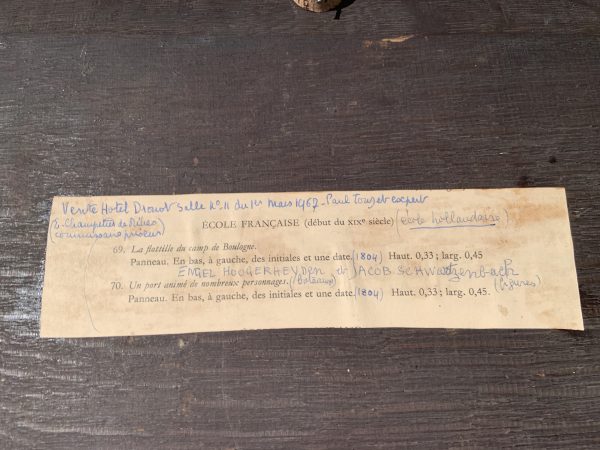 Vente Hotel Drouot Salle No 11 du 1er Mars 1967 - Paul Touzet expert
E. Champetier de Ribes
(commissaire priseur)
ÉCOLE FRANÇAISE (début du XIXe siècle) (école hollandaise)
69. La flottille du camp de Boulogne.
Panneau. En bas, à gauche, des initiales et une date. (1804) Haut. 0,33 ; larg. 0,45
ENGEL HOOGERHEYDEN et JACOB SCHWARTZENBACH
70. Un port animé de nombreux personnages. (Bateaux) (figures)
Panneau. En bas, à gauche, des initiales et une date. (1804) Haut. 0,33 ; larg. 0,45.